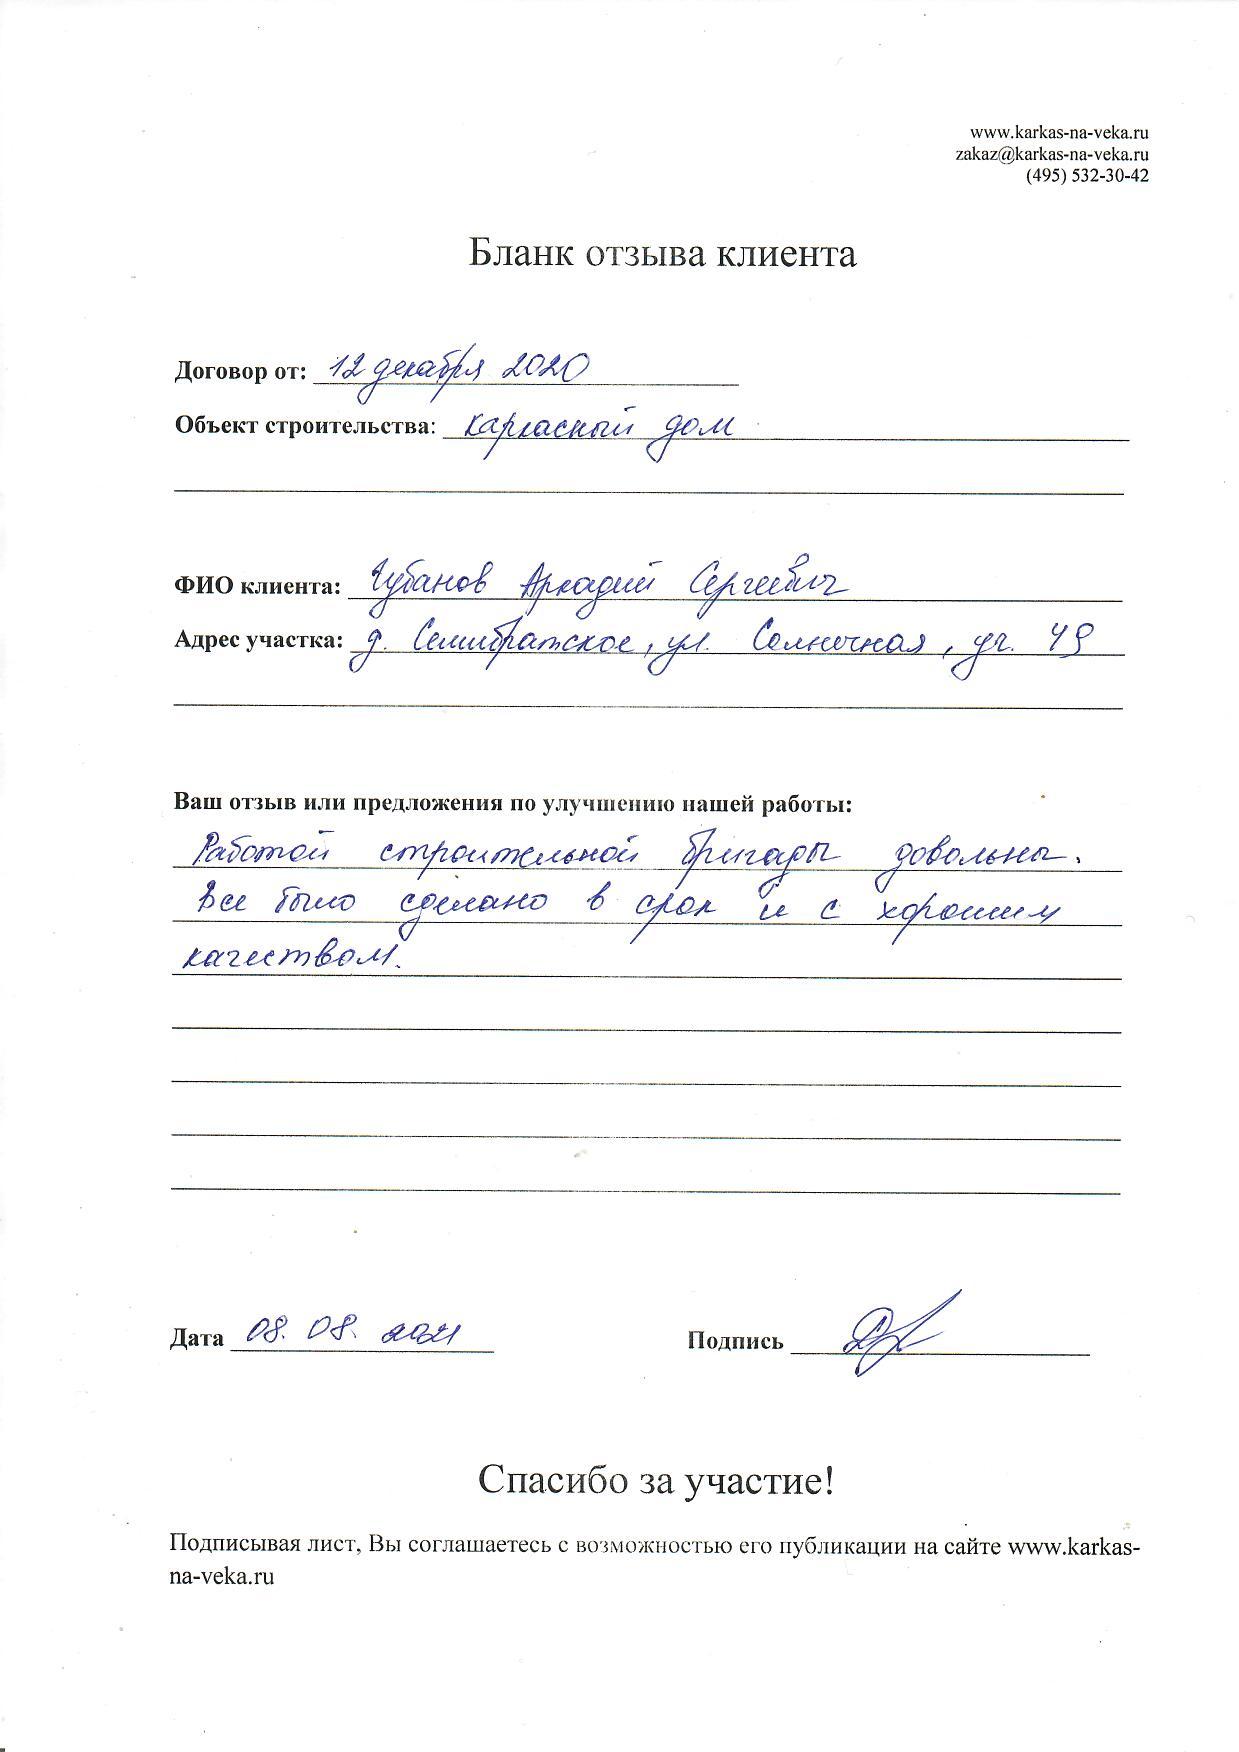 www.karkas-na-veka.ru
zakaz@karkas-na-veka.ru
(495) 532-30-42
Бланк отзыва клиента
Договор от: 12 декабря 2020
Объект строительства: каркасный дом
ФИО клиента: Чубанов Аркадий Сергеевич
Адрес участка: д. Семибратское, ул. Солнечная, уч. 49
Ваш отзыв или предложения по улучшению нашей работы:
Работой строительной бригады довольны.
Все было сделано в срок и с хорошим
качеством.
Дата 08.08.2021 Подпись
Спасибо за участие!
Подписывая лист, Вы соглашаетесь с возможностью его публикации на сайте www.karkas-
na-veka.ru